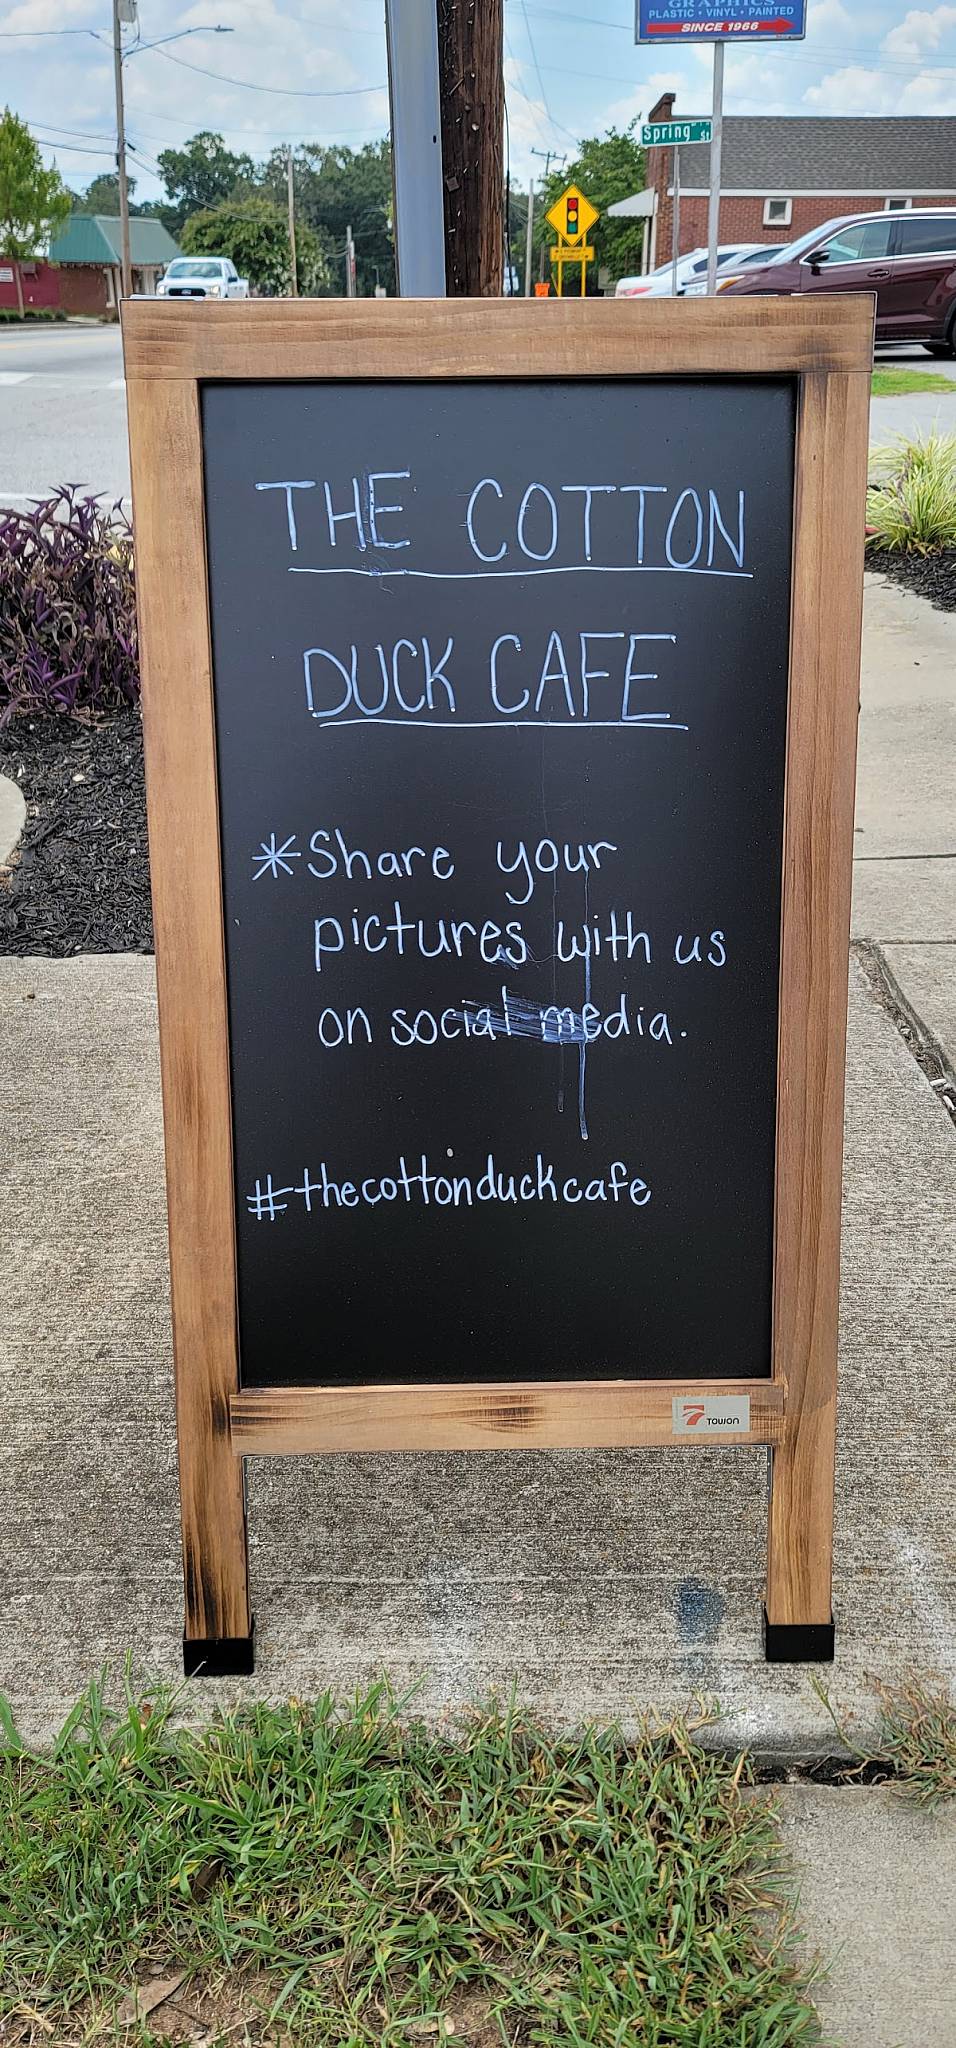 GRAPHICS
PLASTIC • VINYL • PAINTED
SINCE 1966
Spring St
THE COTTON
DUCK CAFE
*Share your
pictures with us
on social media.
#thecottonduckcafe
TOWON